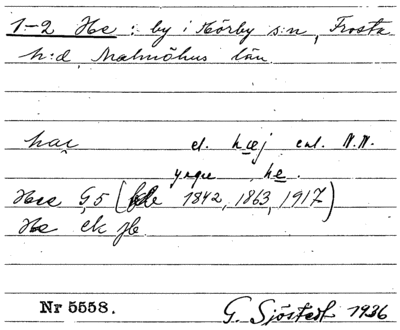 1-2 He : by i Hörby s:n, Frosta
h:d, Malmöhus län
hae̯ el. hæj enl. N.N.
yngre he.
Hee G5 ( 1842, 1863, 1917)
He ek jb
Nr 5558. G. Sjöstedt 1936